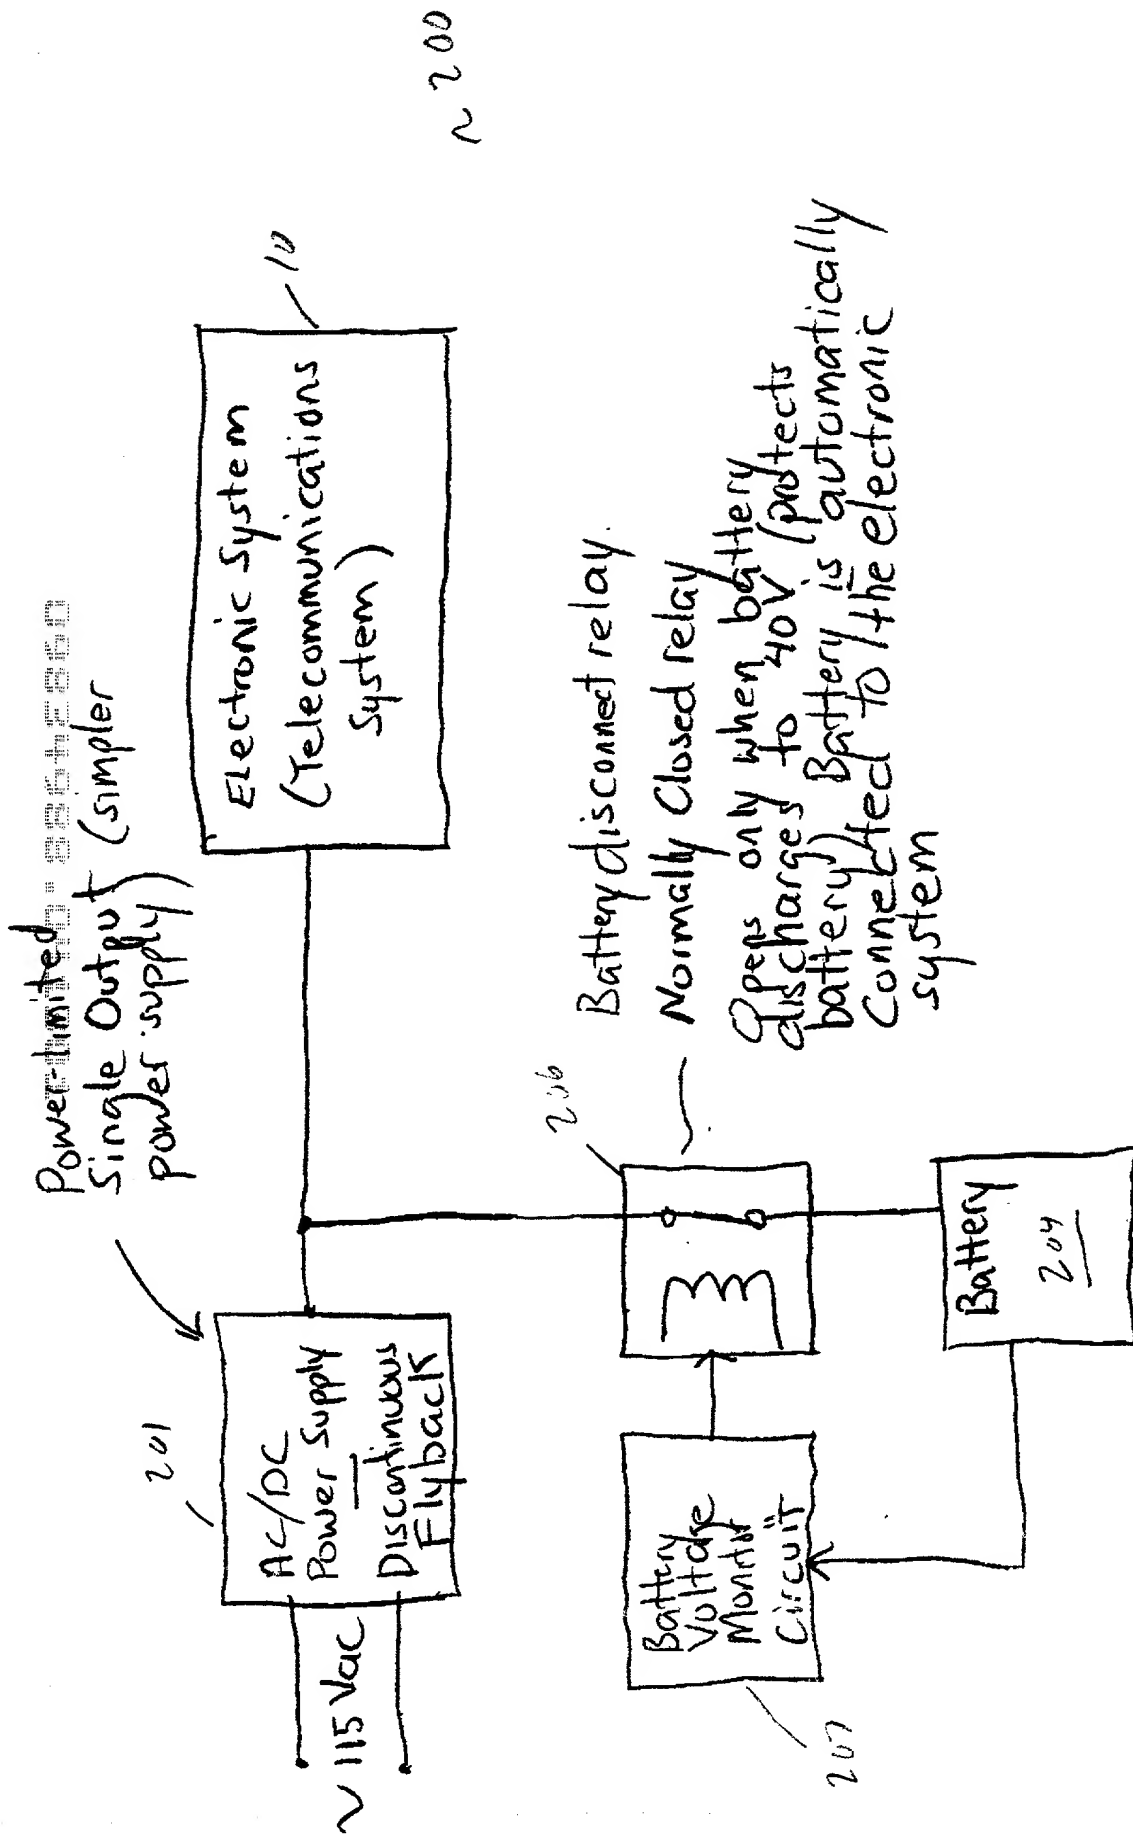 Power-Limited
Single Output (simpler
power supply)
201
AC/DC
Power Supply
Discontinuous
Flyback
~ 115 Vac
Electronic System
(Telecommunications
System)
10
~ 200
206
Battery disconnect relay.
Normally Closed relay
Opens only when battery
discharges to 40V (protects
battery) Battery is automatically
Connected to the electronic
system
Battery
Voltage
Monitor
Circuit
207
Battery
204